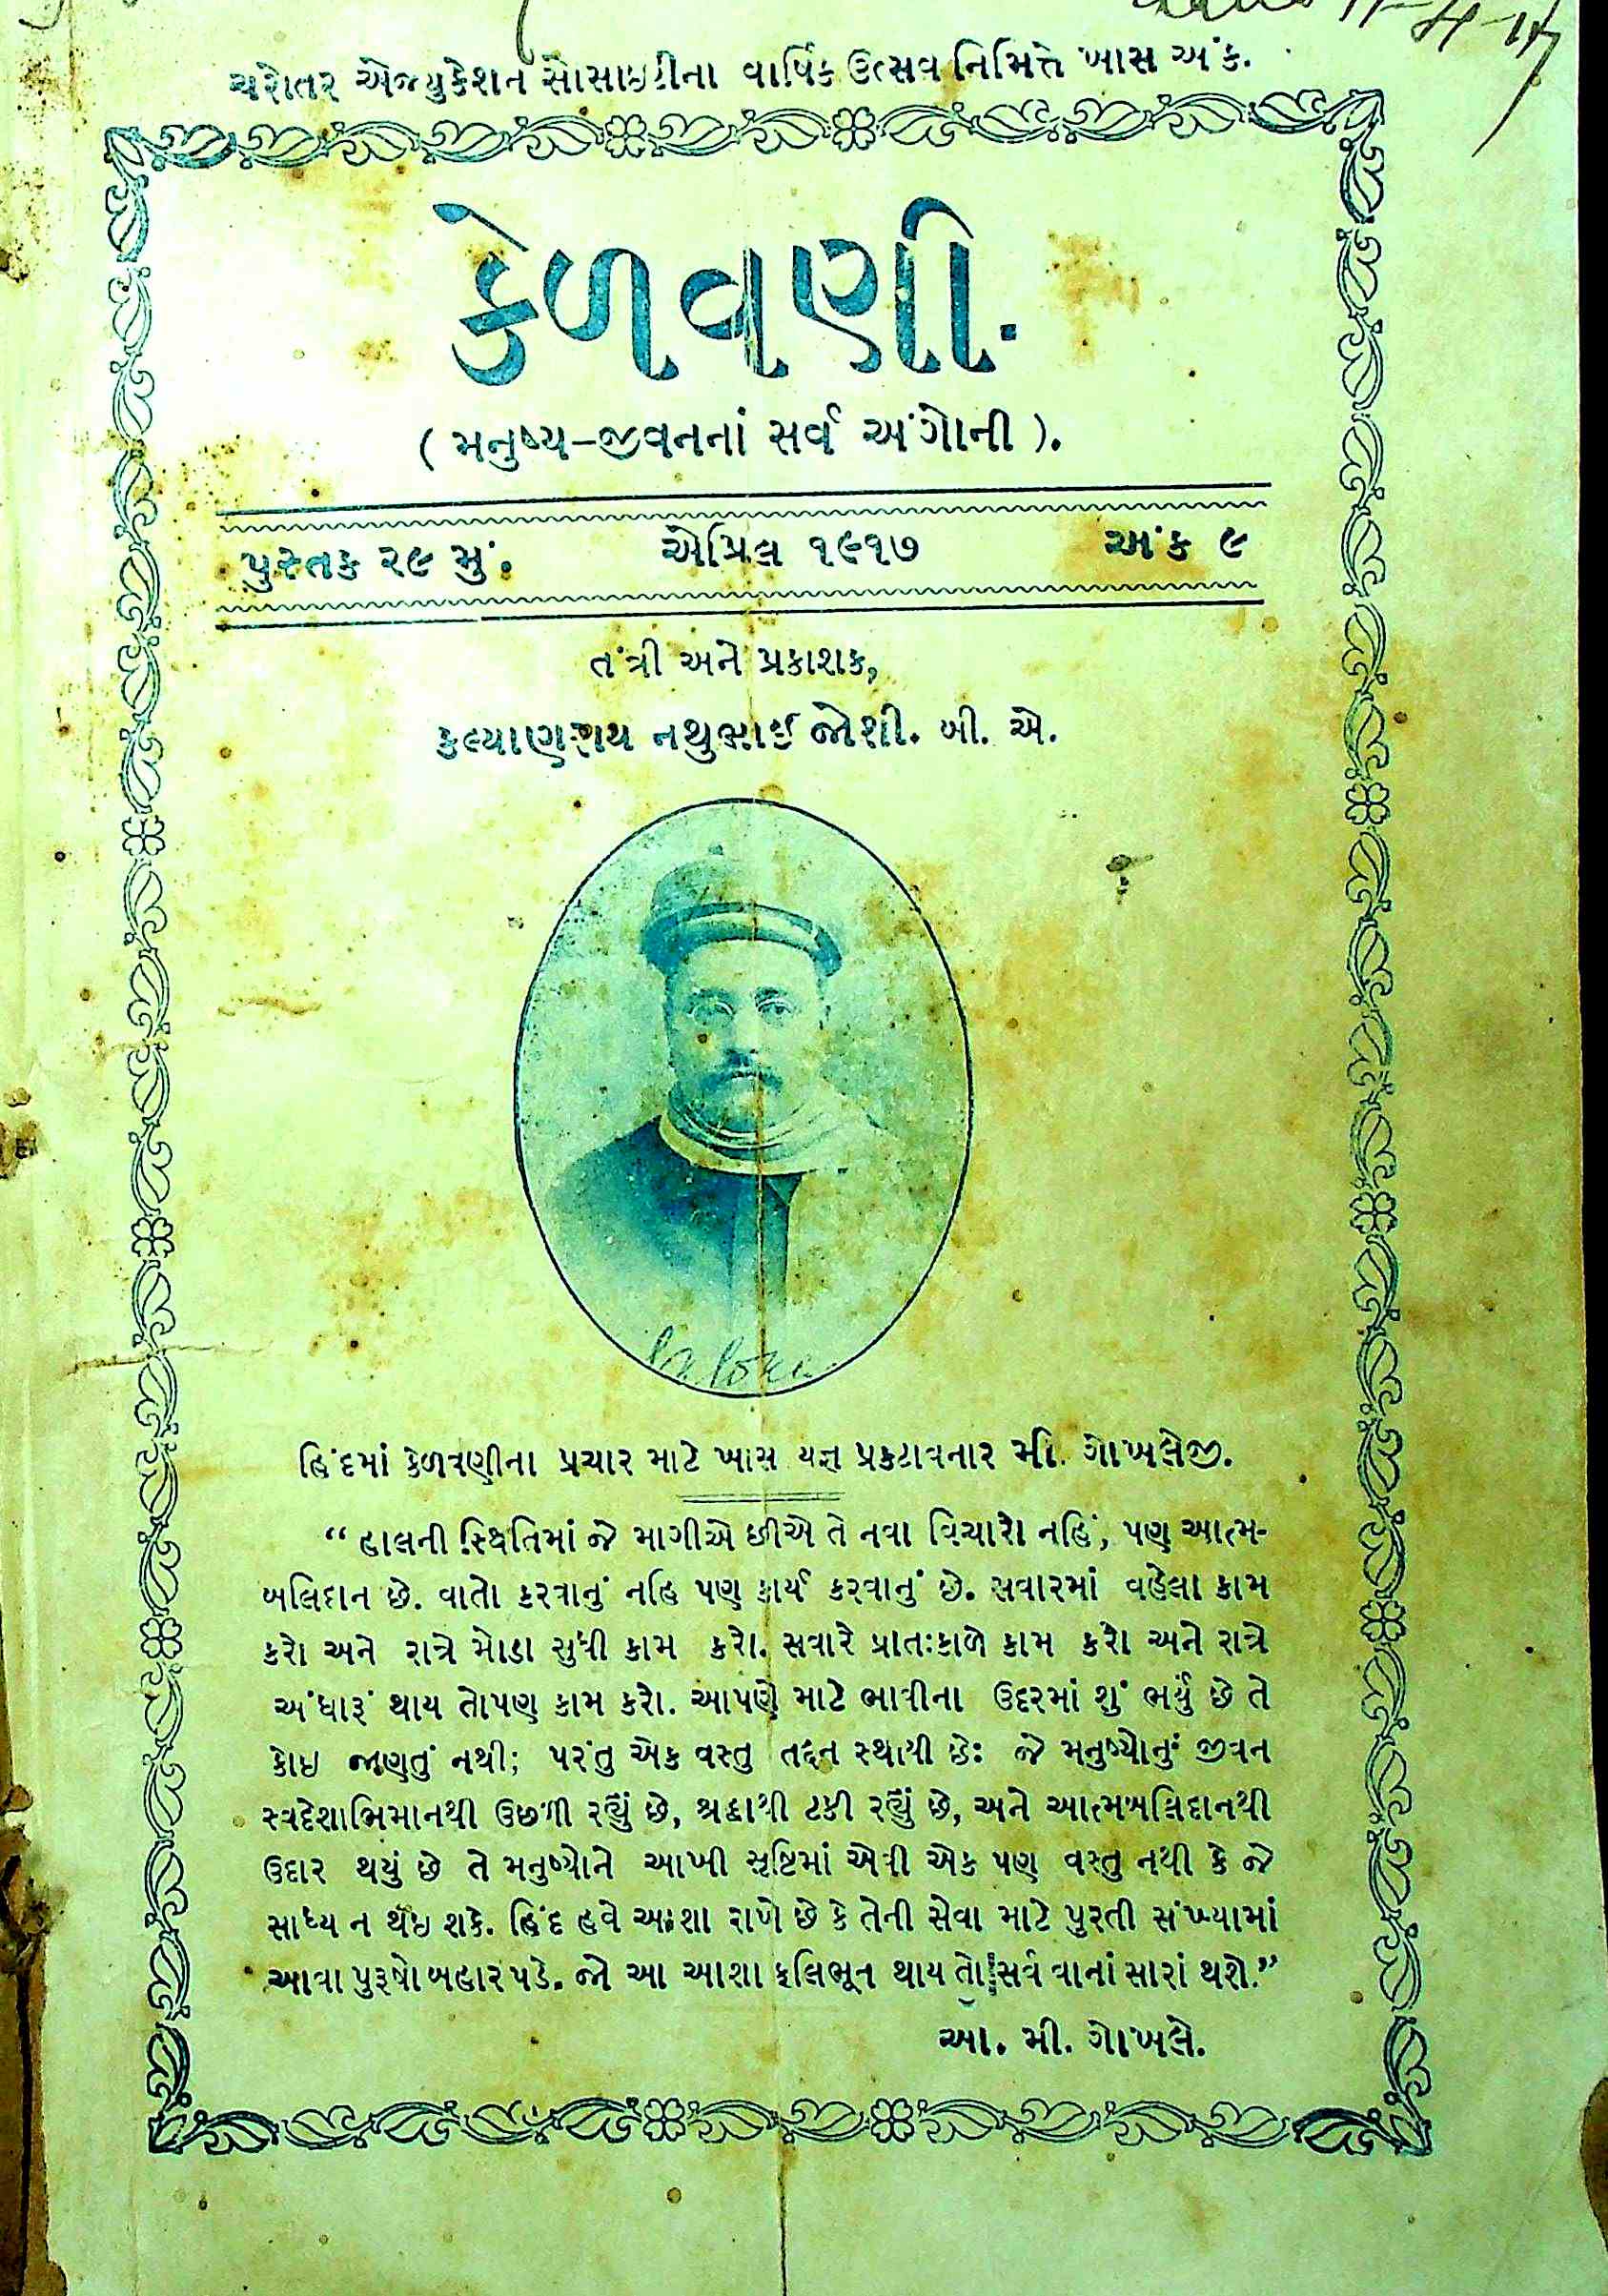 ચરોતર એજ્યુકેશન સોસાઇટીના વાર્ષિક ઉત્સવ નિમિત્તે ખાસ અંક.
કેળવણી.
( મનુષ્ય-જીવનનાં સર્વ અંગોની ).
પુસ્તક ૨૯ મું. એપ્રિલ ૧૯૧૭ અંક ૯
તંત્રી અને પ્રકાશક,
કલ્યાણરાય નથુભાઈ જોશી. બી. એ.
હિંદમાં કેળવણીના પ્રચાર માટે ખાસ યજ્ઞ પ્રકટાવનાર મી. ગોખલેજી.
“ હાલની સ્થિતિમાં જે માગીએ છીએ તે નવા વિચારો નહિં, પણ આત્મ-
બલિદાન છે. વાતો કરવાનું નહિ પણ કાર્ય કરવાનું છે. સવારમાં વહેલા કામ
કરો અને રાત્રે મોડા સુધી કામ કરો. સવારે પ્રાતઃકાળે કામ કરો અને રાત્રે
અંધારૂં થાય તોપણ કામ કરો. આપણે માટે ભાવીના ઉદરમાં શું ભર્યું છે તે
કોઇ જાણતું નથી; પરંતુ એક વસ્તુ તદ્દન સ્થાયી છેઃ જે મનુષ્યોનું જીવન
સ્વદેશાભિમાનથી ઉછળી રહ્યું છે, શ્રદ્ધાથી ટકી રહ્યું છે, અને આત્મબલિદાનથી
ઉદાર થયું છે તે મનુષ્યોને આખી સૃષ્ટિમાં એવી એક પણ વસ્તુ નથી કે જે
સાધ્ય ન થઇ શકે. હિંદ હવે આશા રાખે છે કે તેની સેવા માટે પુરતી સંખ્યામાં
આવા પુરૂષો બહાર પડે. જો આ આશા ફલિભૂત થાય તો સર્વ વાનાં સારાં થશે.”
આ. મી. ગોખલે.